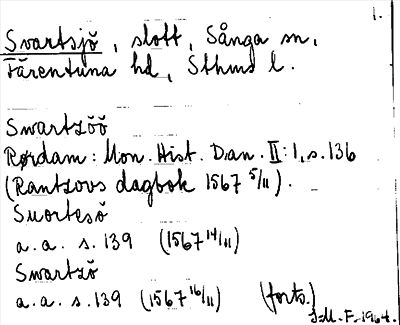 1.
Svartsjö, slott, Sånga sn,
Färentuna hd, Sthms l.
Swartzöö
Rørdam: Mon. Hist. Dan. II:1, s. 136
(Rantzovs dagbok 1567 5/11).
Suortesö
a. a. s. 139 (1567 14/11)
Swartzö
a. a. s. 139 (1567 16/11) (forts.)
J.M. F. 1964.